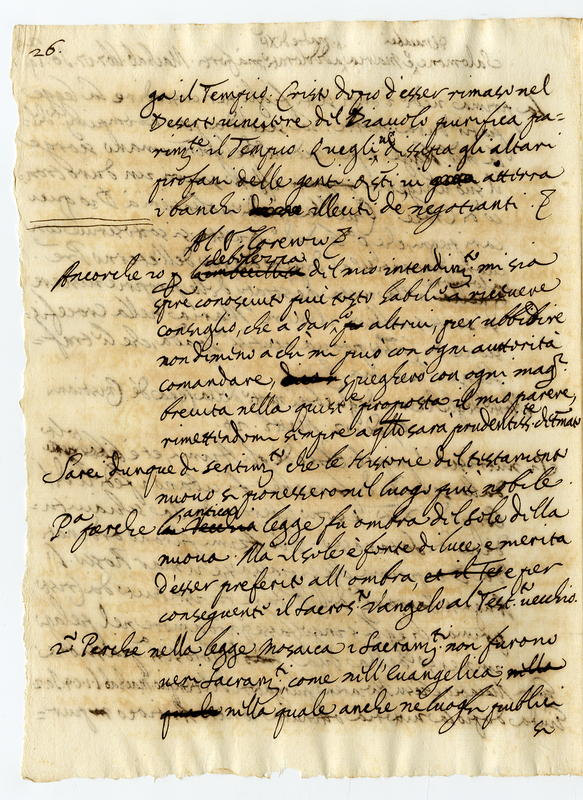 26.
ga il Tempio. Cristo dopo d'esser rimaso nel
Deserto vincitore del Diavolo purifica pa-
rim.te il Tempio. Quegli dissipa gli altari
profani delle genti. Q.sti vi atterra
i banchi illeciti de negotianti.
Al P. Lorenzo
debolezza
Ancorche io p imbecillità del mio intendim.to mi sia
sp̃re conosciuto più tosto habile a ricevere
consiglio, che à dar altrui, per ubbidire
nondimeno à chi mi può con ogni autorità
comandare, spiegherò con ogni mag.r
brevità nella quist.e proposta il mio parere,
rimettendomi sempre à q.llo sarà prudentiss.te det.mato
Sarei dunque di sentim.to che le Historie del testamento
nuovo si ponessero nel luogo più nobile.
antica
P.a perche la Vecchia legge fù ombra del sole della
nuova. Ma il sole è fonte di luce, e merita
d'esser preferito all'ombra, et il Tes e per
conseguente il Sacros.to Vangelo al Test.to vecchio.
2.a Perche nella legge Mosaica i Sacram.ti non furono
veri Sacram.ti, come nell'Euangelica, nella
quale nella quale anche ne luoghi publici
si